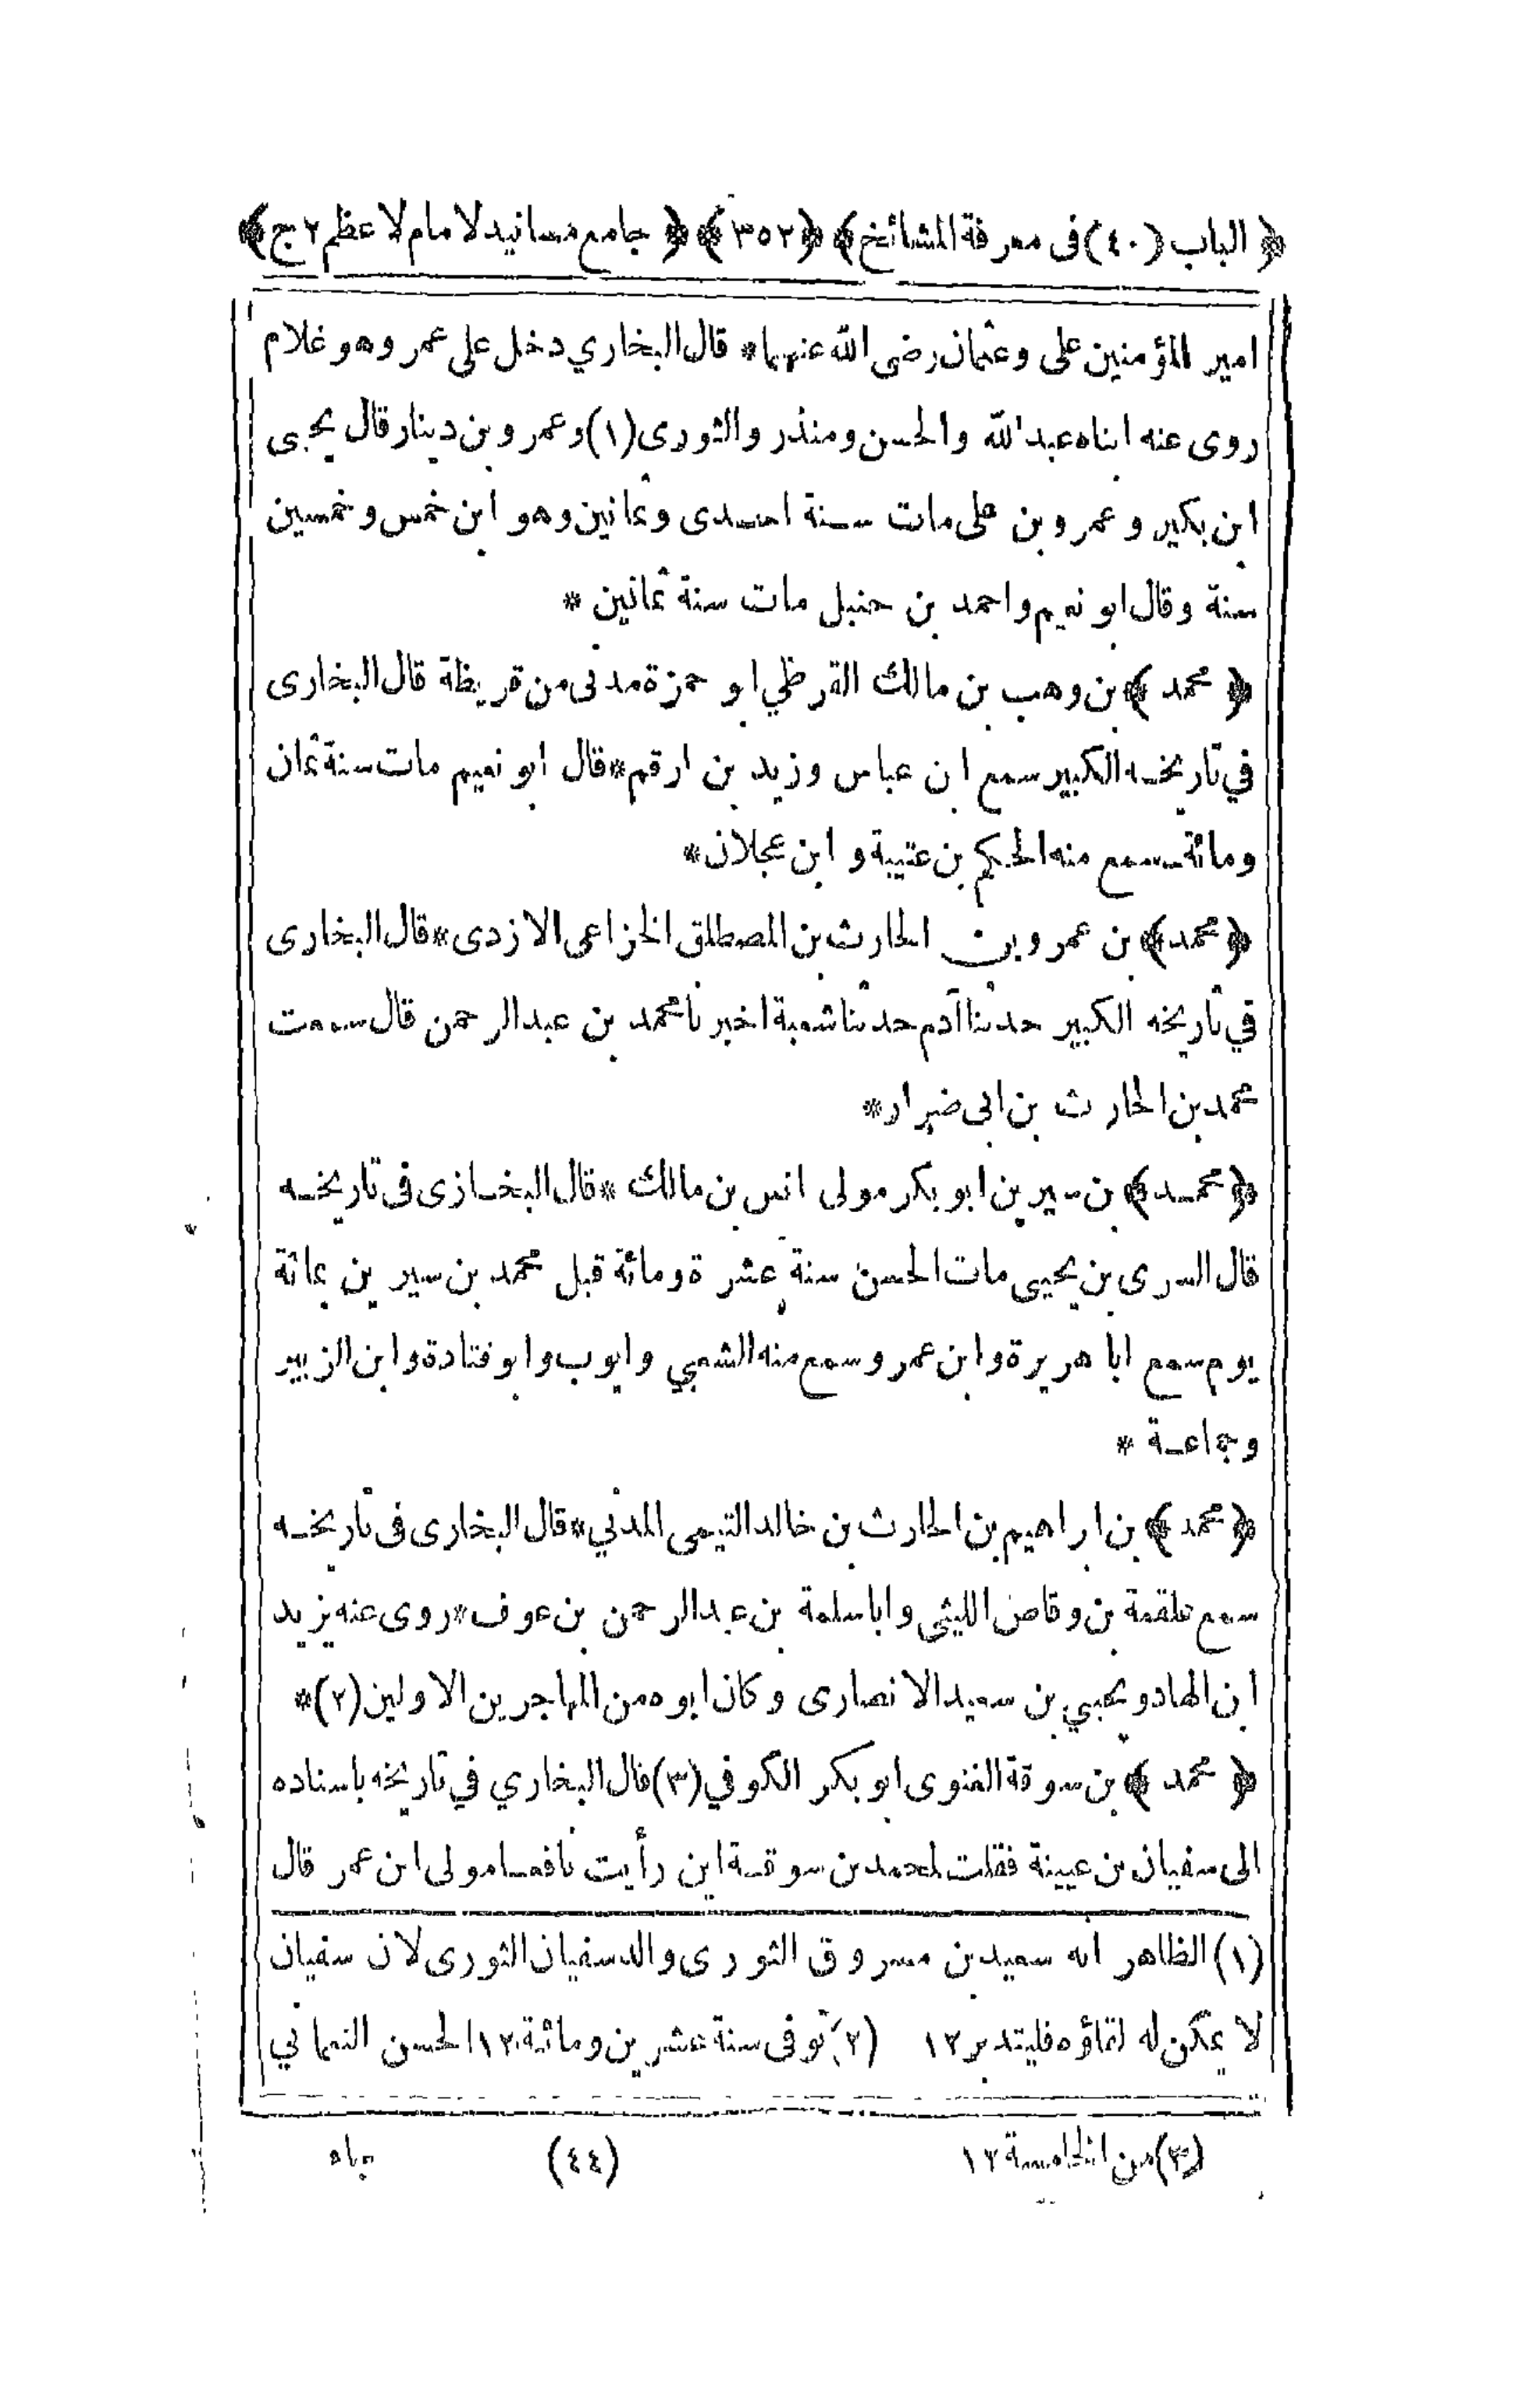 ﴿ الباب (٤٠) فى معرفة المشائخ ﴾ ﴿ ٣٥٢ ﴾ ﴿ جامع مسانيد لامام لا عظم ٢ ج ﴾
امير المؤمنين على وعثمان رضى الله عنهما * قال البخاري دخل على عمر وهو غلام
روى عنه ابناه عبد الله والحسن ومنذر والثورى (١) وعمرو بن دينار قال يحيى
ابن بكير وعمرو بن على مات سنة احدى وثمانين وهو ابن خمس وخمسين
سنة وقال ابو نعيم واحمد بن حنبل مات سنة ثمانين *
﴿ محمد ﴾ بن وهب بن مالك القرظي ابو حمزة مدنى من قريظة قال البخارى
في تاريخه الكبير سمع ابن عباس وزيد بن ارقم * قال ابو نعيم مات سنة ثمان
ومائة سمع منه الحكم بن عتيبة وابن عجلان *
﴿ محمد ﴾ بن عمرو بن الحارث بن المصطلق الخزاعى الازدى * قال البخارى
في تاريخه الكبير حدثنا آدم حدثنا شعبة اخبرنا محمد بن عبد الرحمن قال سمعت
محمد بن الحارث بن ابى ضرار *
﴿ محمد ﴾ بن سيرين ابو بكر مولى انس بن مالك * قال البخازى فى تاريخه
قال السرى بن يحيى مات الحسن سنة عشرة ومائة قبل محمد بن سيرين بمائة
يوم سمع ابا هريرة وابن عمر وسمع منه الشعبي وايوب وابو قتادة وابن الزبير
وجماعة *
﴿ محمد ﴾ بن ابراهيم بن الحارث بن خالد التيمى المدني * قال البخارى فى تاريخه
سمع علقمة بن وقاص الليثى وابا سلمة بن عبد الرحمن بن عوف * روى عنه يزيد
ابن الهاد ويحيي بن سعيد الانصارى وكان ابوه من المهاجرين الاولين (٢) *
﴿ محمد ﴾ بن سوقة الغنوى ابو بكر الكوفي (٣) قال البخاري في تاريخه باسناده
الى سفيان بن عيينة فقلت لمحمد بن سوقة اين رأيت نافعا مولى ابن عمر قال
(١) الظاهر انه سعيد بن مسروق الثورى والد سفيان الثورى لان سفيان
لا يمكن له لقاؤه فليتدبر ١٢ (٢) توفى سنة عشرين ومائة ١٢ الحسن النعماني
(٣) من الخامسة ١٢ (٤٤)